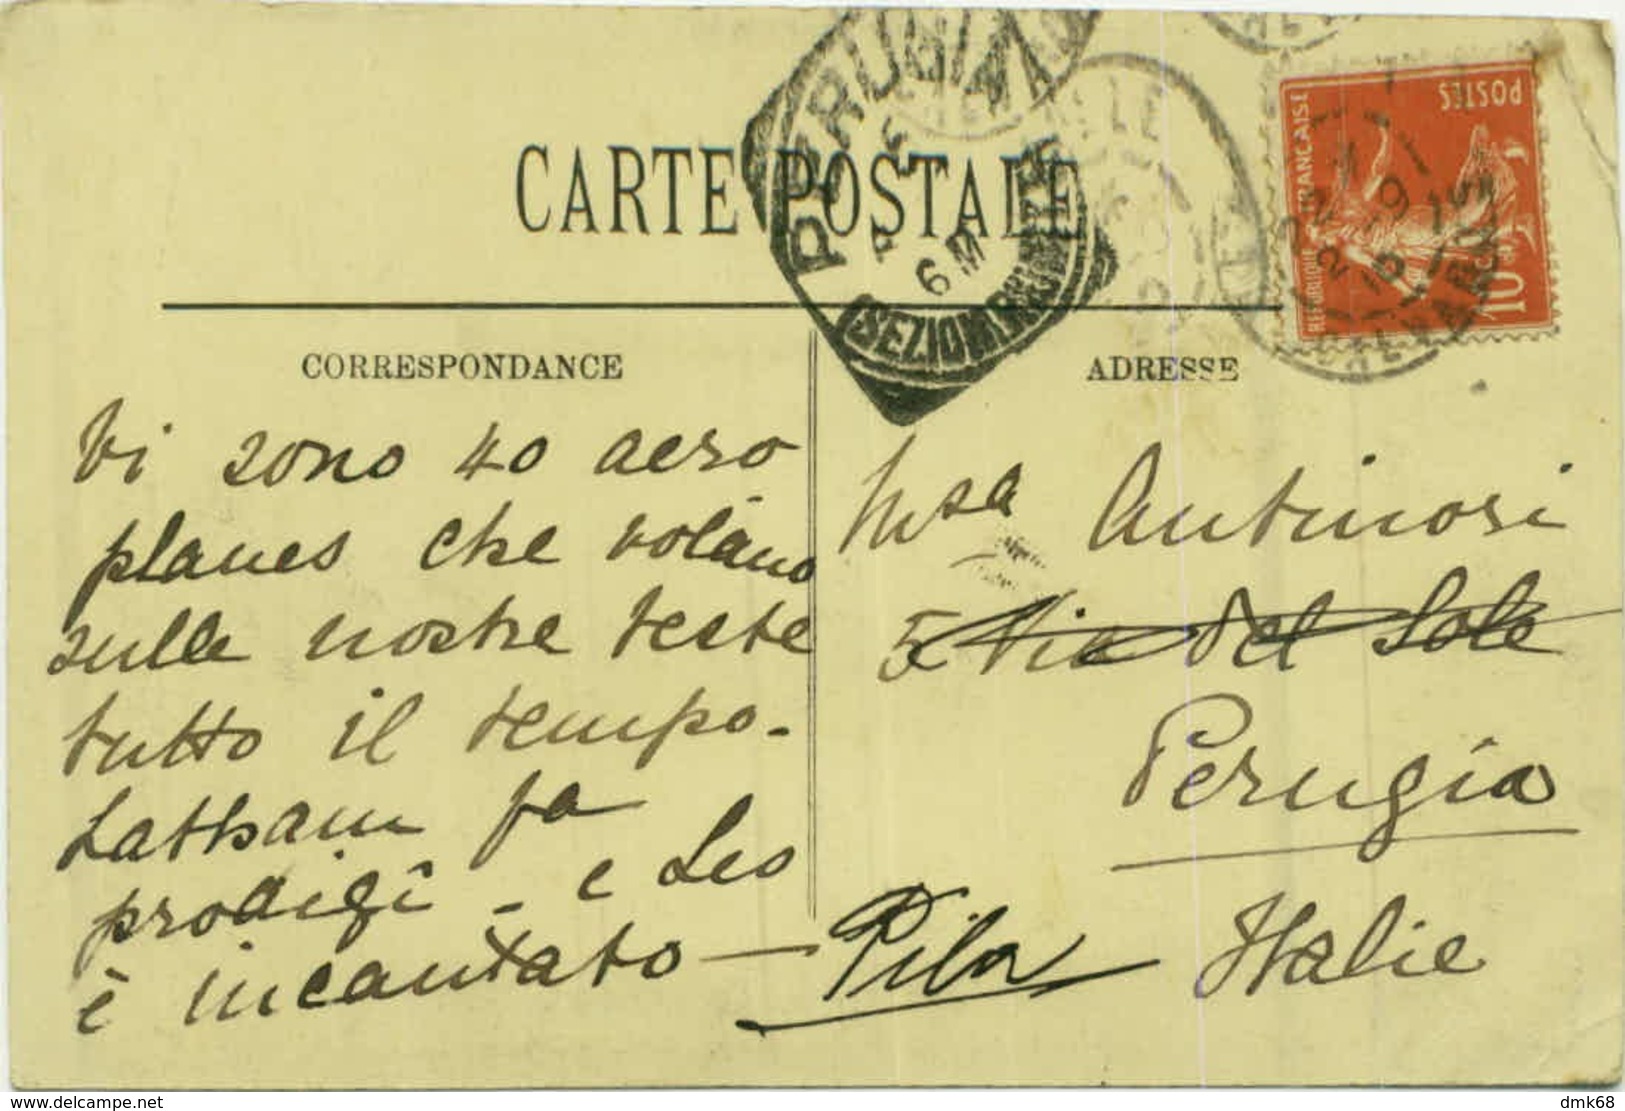 CARTE POSTALE
PERUGIA
6 M
POSTES
REPUBLIQUE FRANÇAISE
10
CORRESPONDANCE
ADRESSE
Vi sono 40 aero
planes che volano
sulle nostre teste
tutto il tempo.
Latham fa
prodigi - e Leo
è incantato —
Msa Antinori
5 Via del Sole
Perugia
Pila
Italie
www.delcampe.net
dmk68